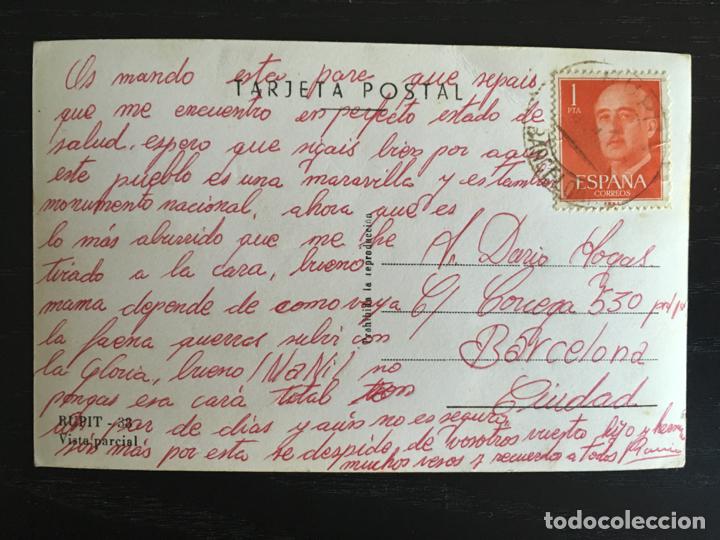 Os mando esta para que sepais
TARJETA POSTAL
que me encuentro en perfecto estado de
salud, espero que sigais bien por aqui
este pueblo es una maravilla y es tambien
monumento nacional, ahora que es
lo más aburrido que me he
tirado a la cara, bueno
mama depende de como vaya
la faena querras subir con
la Gloria, bueno ¡MaNi! no
pongas esa cará total son
un par de dias y aún no es seguro,
sin más por esta se despide de vosotros vuestro hijo y
muchos vesos y recuerdos a todos
1
PTA
ESPAÑA
CORREOS
BARCELO
Prohibida la reproducción
A. Dario Hogas
C/ Corcega 530
Barcelona
Ciudad
RUPIT - 33
Vista parcial
todocoleccion
todocoleccion.net